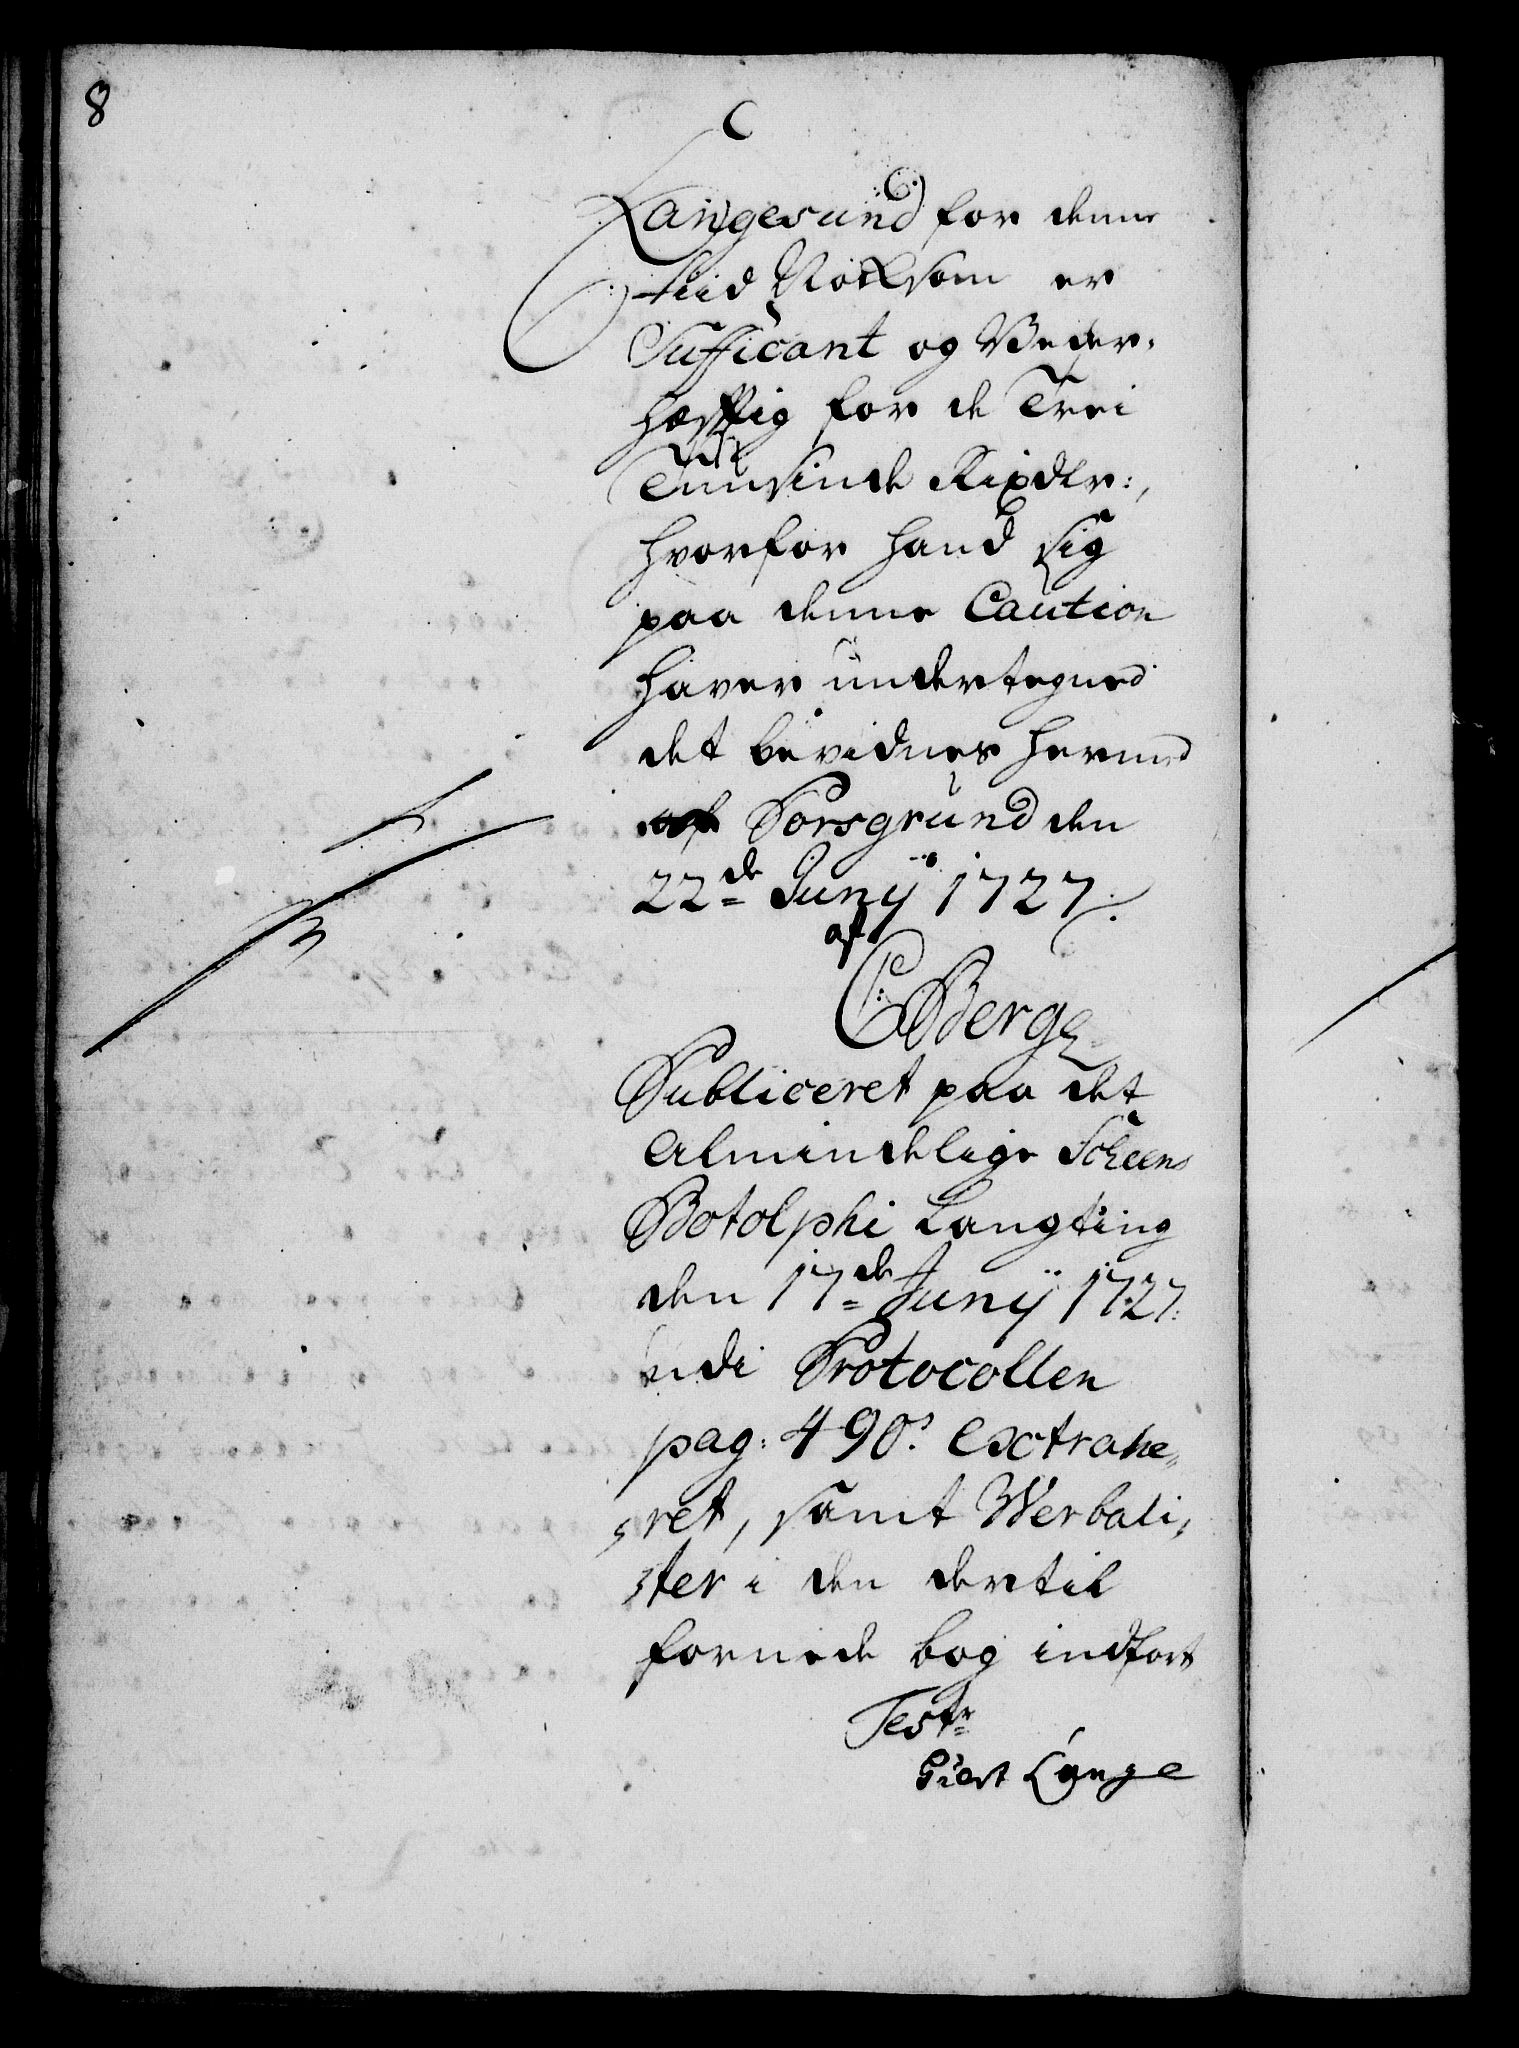 8
Langesund for denne
tiid Nocksom er
Sufficant og Veder-
hæfftig for de Trei
Tuusinde Rixdlr:,
hvorfor hand sig
paa denne Caution
haver undertegned
det bevidnes hermed
Porsgrund den
22de Junÿ 1727.
af
C: Berg
Publiceret paa det
Almindelige Scheens
Botolphi Langting
den 17de Junÿ 1727:
udi Protocollen
pag: 490. Extrahe-
ret, samt Verbali-
ter i den dertil
fornede bog indført
Testr
Giert Lange